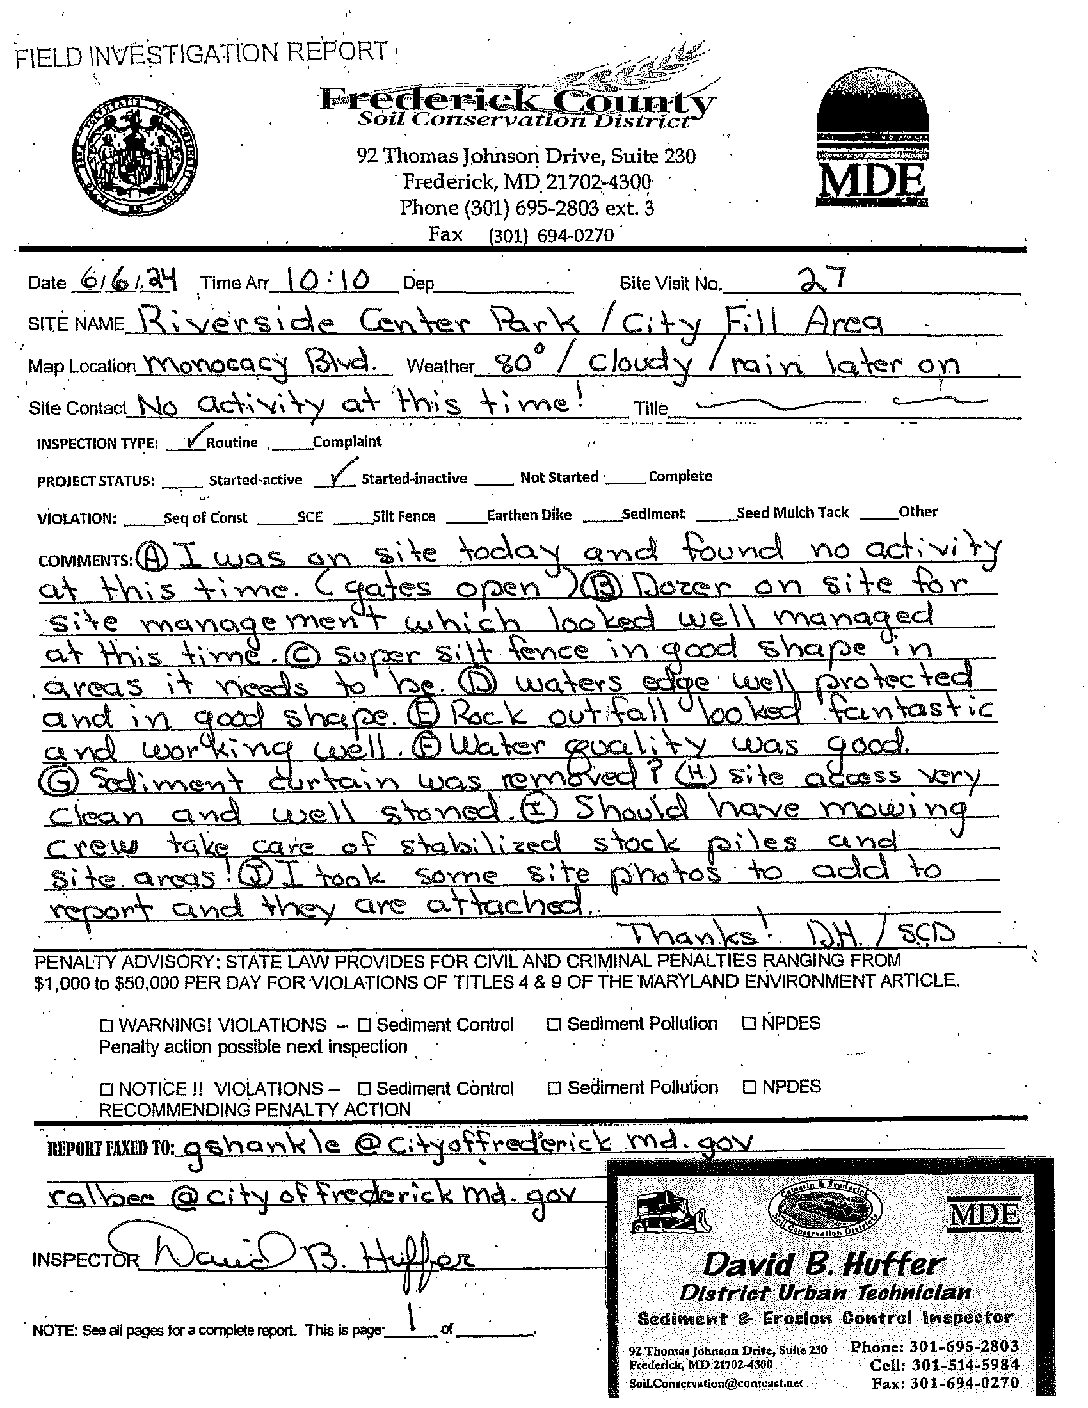 FIELD INVESTIGATION REPORT
Frederick County
Soil Conservation District
92 Thomas Johnson Drive, Suite 230
Frederick, MD 21702-4300
Phone (301) 695-2803 ext. 3
Fax (301) 694-0270
MDE
Date 6/6/24 Time Arr 10:10 Dep Site Visit No. 27
SITE NAME Riverside Center Park / City Fill Area
Map Location Monocacy Blvd. Weather 80° / Cloudy / rain later on
Site Contact No activity at this time! Title
INSPECTION TYPE: ✓ Routine Complaint
PROJECT STATUS: Started-active ✓ Started-inactive Not Started Complete
VIOLATION: Seq of Const SCE Silt Fence Earthen Dike Sediment Seed Mulch Tack Other
COMMENTS: (A) I was on site today and found no activity
at this time. (gates open) (B) Dozer on site for
site management which looked well managed
at this time. (C) Super silt fence in good shape in
areas it needs to be. (D) waters edge well protected
and in good shape. (E) Rock outfall looked fantastic
and working well. (F) Water quality was good.
(G) Sediment curtain was removed? (H) site access very
clean and well stoned. (I) Should have mowing
crew take care of stabilized stock piles and
site areas! (J) I took some site photos to add to
report and they are attached.
Thanks! D.H. / SCD
PENALTY ADVISORY: STATE LAW PROVIDES FOR CIVIL AND CRIMINAL PENALTIES RANGING FROM
$1,000 to $50,000 PER DAY FOR VIOLATIONS OF TITLES 4 & 9 OF THE MARYLAND ENVIRONMENT ARTICLE.
☐ WARNING! VIOLATIONS – ☐ Sediment Control ☐ Sediment Pollution ☐ NPDES
Penalty action possible next inspection
☐ NOTICE !! VIOLATIONS – ☐ Sediment Control ☐ Sediment Pollution ☐ NPDES
RECOMMENDING PENALTY ACTION
REPORT FAXED TO: gshankle@cityoffrederickmd.gov
ralbee@cityoffrederickmd.gov
INSPECTOR David B. Huffer
NOTE: See all pages for a complete report. This is page 1 of
MDE
David B. Huffer
District Urban Technician
Sediment & Erosion Control Inspector
92 Thomas Johnson Drive, Suite 230 Phone: 301-695-2803
Frederick, MD 21702-4300 Cell: 301-514-5984
Soil.Conservation@comcast.net Fax: 301-694-0270